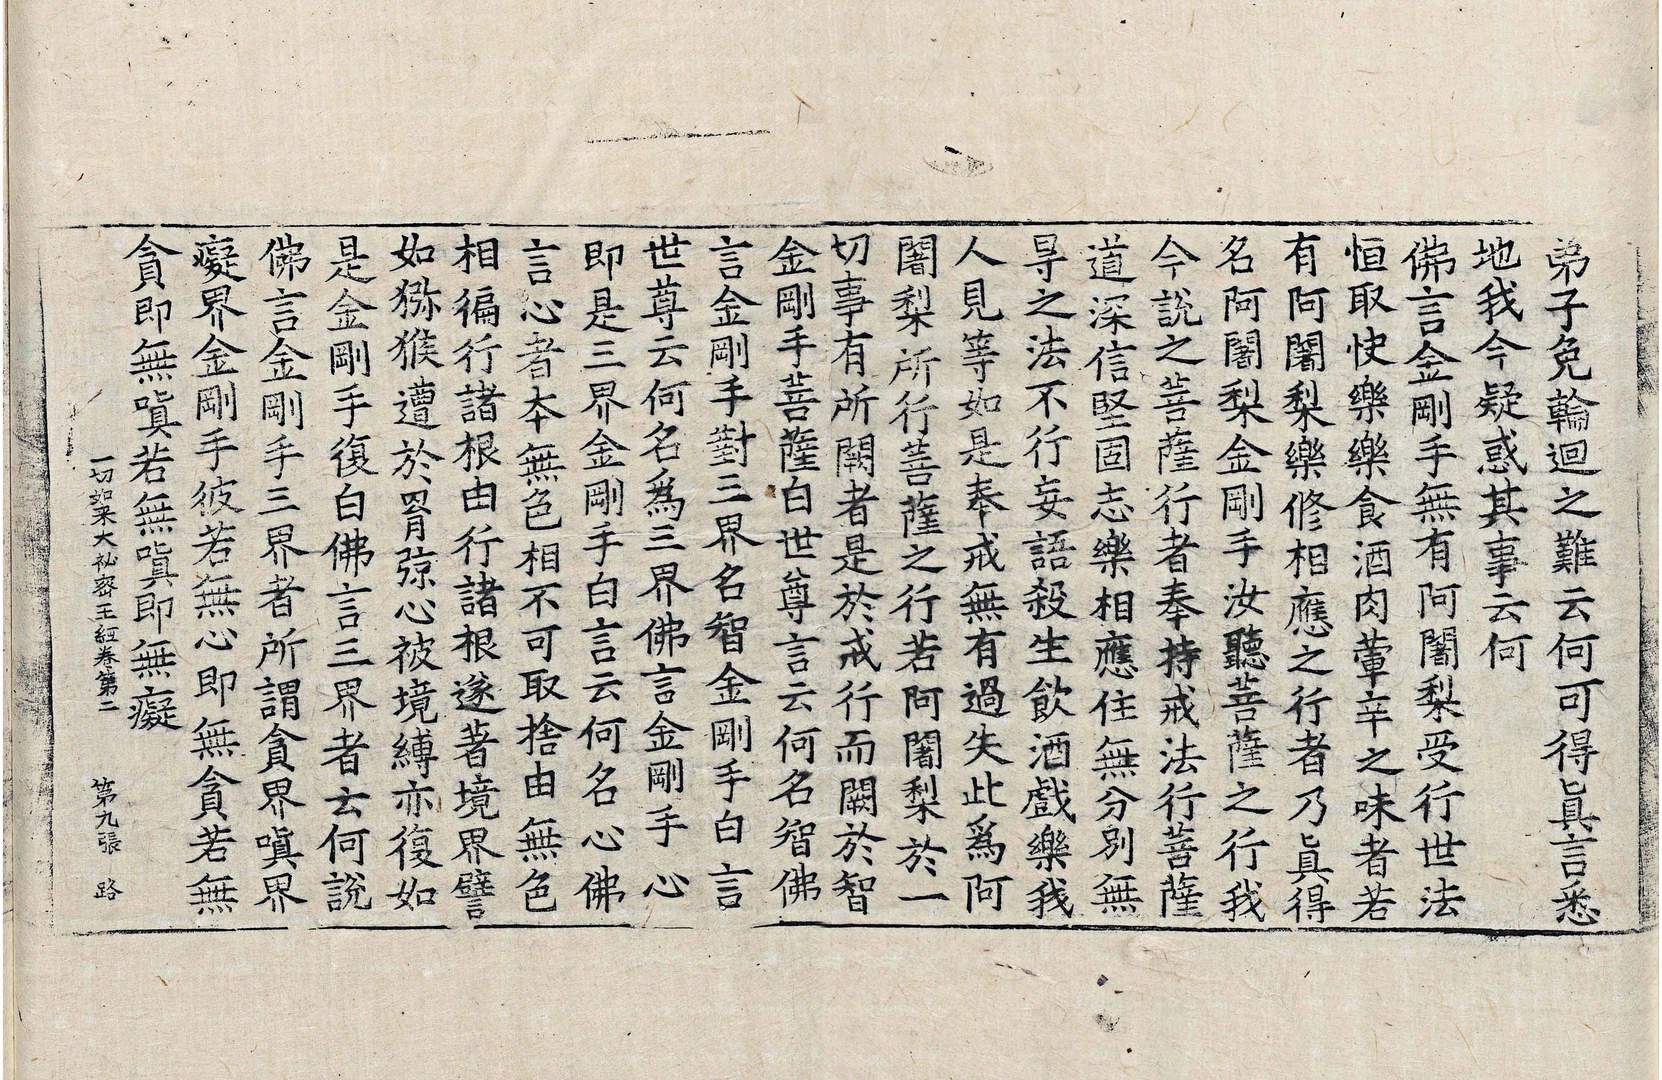 弟子免輪迴之難云何可得眞言悉
地我今疑惑其事云何
佛言金剛手無有阿闍梨受行世法
恒取快樂樂食酒肉葷辛之味者若
有阿闍梨樂修相應之行者乃眞得
名阿闍梨金剛手汝聽菩薩之行我
今說之菩薩行者奉持戒法行菩薩
道深信堅固志樂相應住無分別無
㝵之法不行妄語殺生飮酒戲樂我
人見等如是奉戒無有過失此爲阿
闍梨所行菩薩之行若阿闍梨於一
切事有所闕者是於戒行而闕於智
金剛手菩薩白世尊言云何名智佛
言金剛手對三界名智金剛手白言
世尊云何名爲三界佛言金剛手心
即是三界金剛手白言云何名心佛
言心者本無色相不可取捨由無色
相徧行諸根由行諸根遂著境界譬
如猕猴遭於罥弶心被境縛亦復如
是金剛手復白佛言三界者云何說
佛言金剛手三界者所謂貪界嗔界
癡界金剛手彼若無心即無貪若無
貪即無嗔若無嗔即無癡
一切如來大祕密王經卷第二 第九張 路